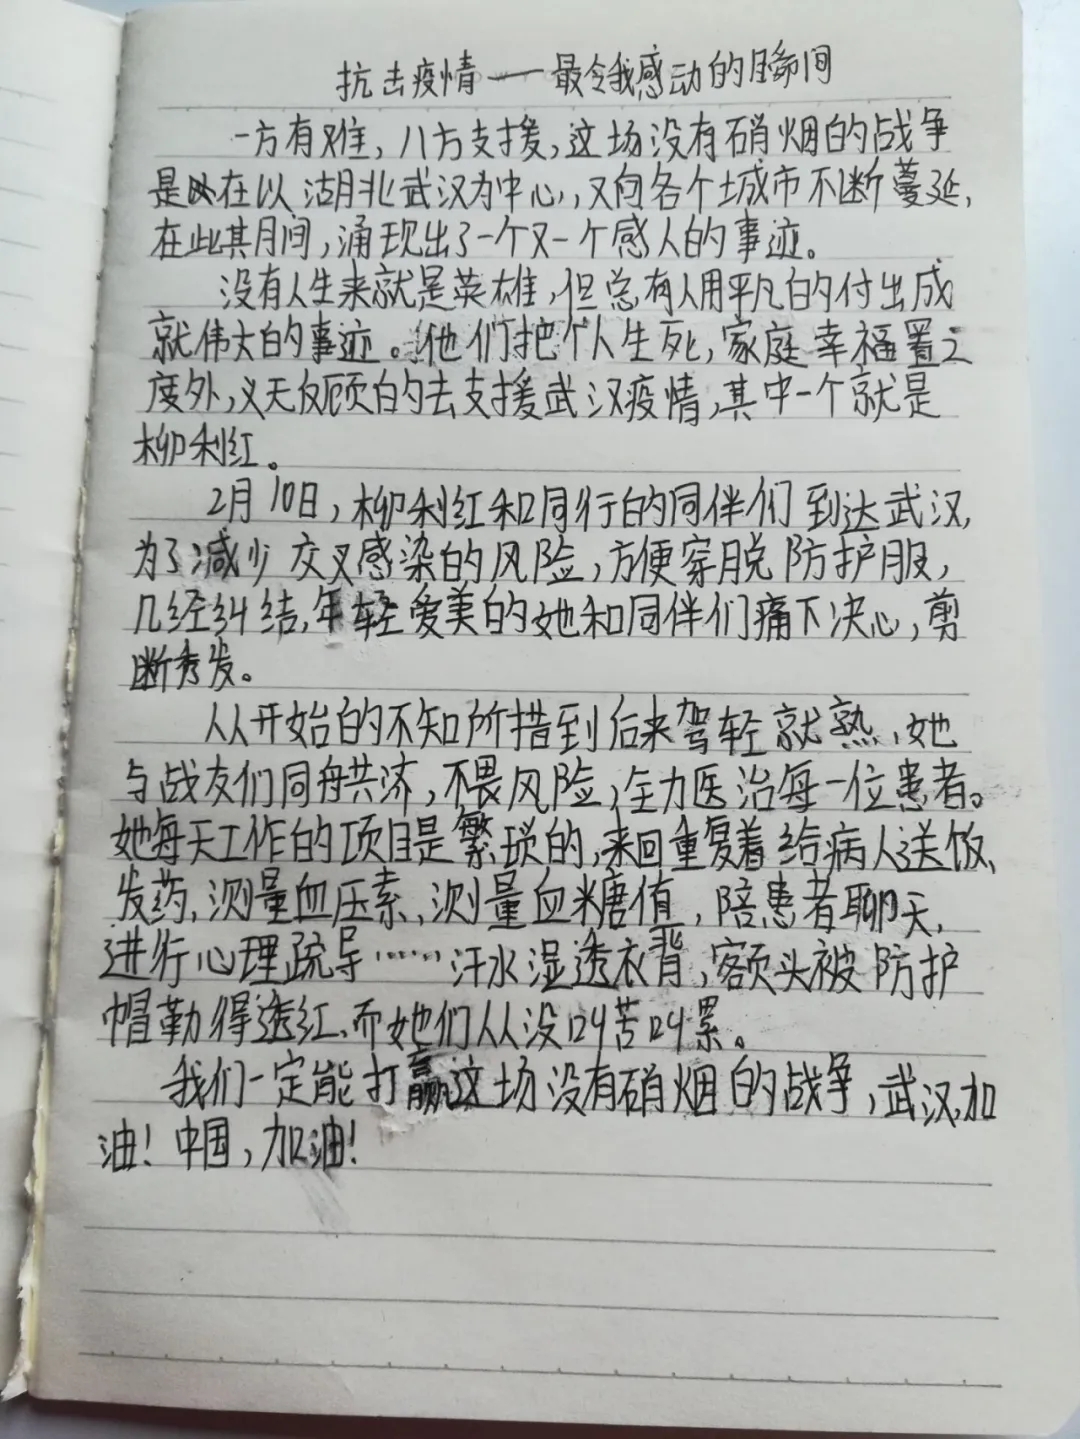 抗击疫情——最令我感动的瞬间
一方有难，八方支援，这场没有硝烟的战争
是在以湖北武汉为中心，又向各个城市不断蔓延，
在此其月间，涌现出了一个又一个感人的事迹。
没有人生来就是英雄，但总有人用平凡的付出成
就伟大的事迹。他们把个人生死，家庭幸福置之
度外，义无反顾的去支援武汉疫情，其中一个就是
柳利红。
2月10日，柳利红和同行的同伴们到达武汉，
为了减少交叉感染的风险，方便穿脱防护服，
几经纠结，年轻爱美的她和同伴们痛下决心，剪
断秀发。
从开始的不知所措到后来驾轻就熟，她
与战友们同舟共济，不畏风险，全力医治每一位患者。
她每天工作的项目是繁琐的，来回重复着给病人送饭、
发药，测量血压素，测量血糖值，陪患者聊天，
进行心理疏导……汗水湿透衣背，额头被防护
帽勒得透红，而她们从没叫苦叫累。
我们一定能打赢这场没有硝烟的战争，武汉，加
油！中国，加油！